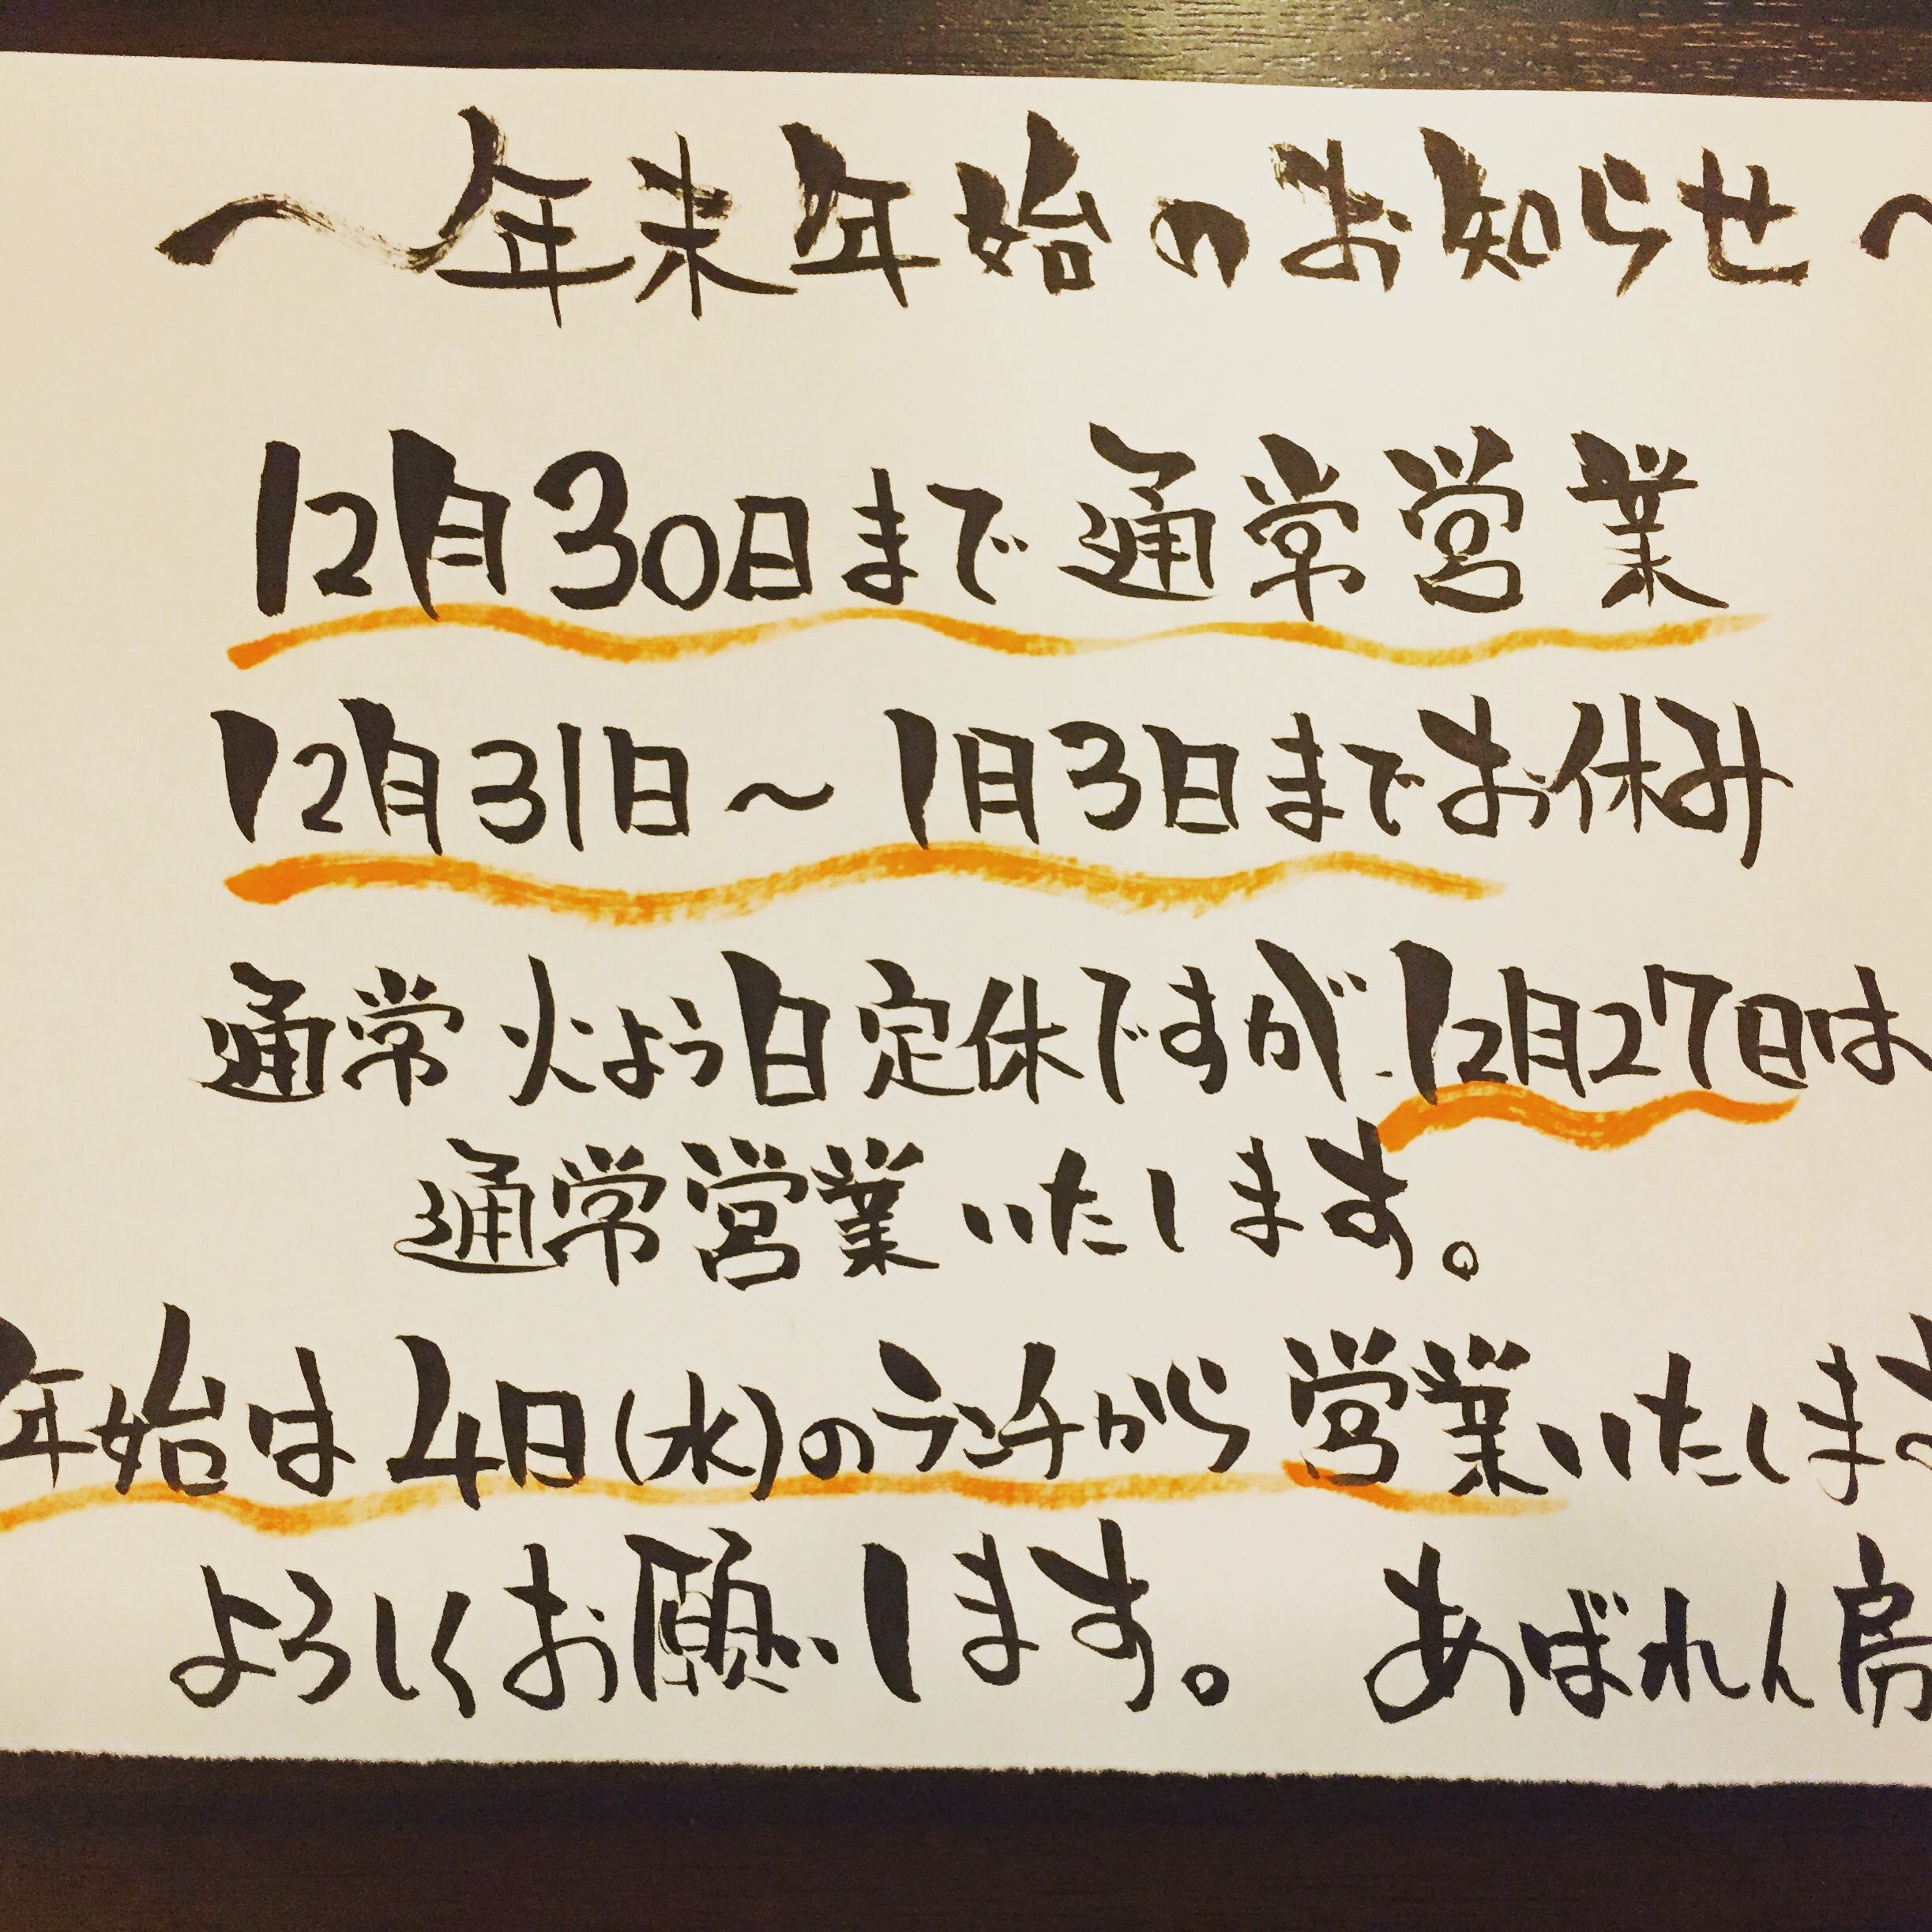 〜年末年始のお知らせ〜
12月30日まで通常営業
12月31日〜1月3日までお休み
通常火よう日定休ですが、12月27日は
通常営業いたします。
年始は4日(水)のランチから営業いたします
よろしくお願いします。 あばれん房